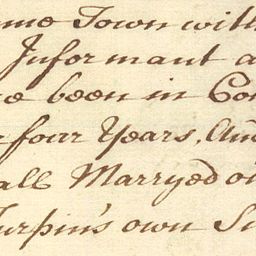 me Town with
Informant a
e been in Con
r four Years, And
all Marryed o
Turpin's own Si